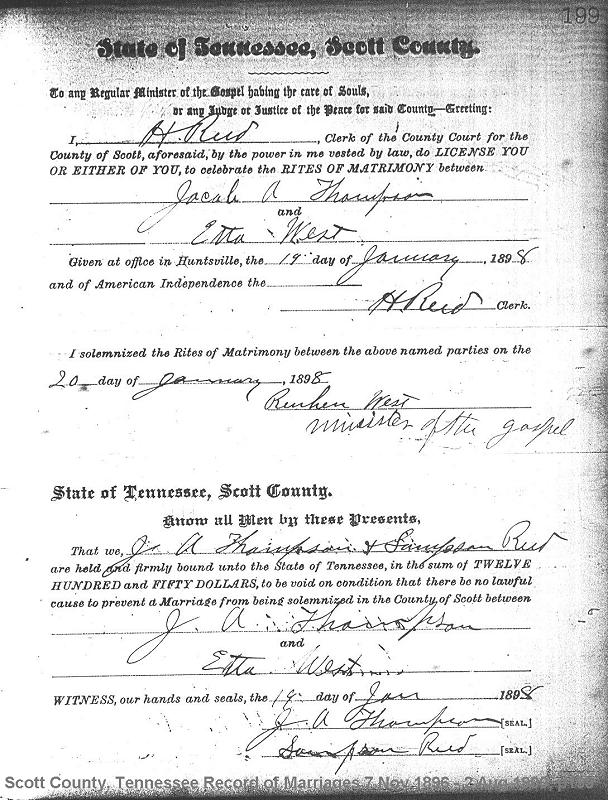 199
State of Tennessee, Scott County.
To any Regular Minister of the Gospel having the care of Souls,
or any Judge or Justice of the Peace for said County—Greeting:
I, H. Reid, Clerk of the County Court for the
County of Scott, aforesaid, by the power in me vested by law, do LICENSE YOU
OR EITHER OF YOU, to celebrate the RITES OF MATRIMONY between
Jacob A Thompson
and
Etta West
Given at office in Huntsville, the 19 day of January, 1898
and of American Independence the
H Reid Clerk.
I solemnized the Rites of Matrimony between the above named parties on the
20 day of January, 1898
Reuben West
minister of the gospel
State of Tennessee, Scott County.
Know all Men by these Presents,
That we, J. A Thompson & Sampson Reid
are held and firmly bound unto the State of Tennessee, in the sum of TWELVE
HUNDRED and FIFTY DOLLARS, to be void on condition that there be no lawful
cause to prevent a Marriage from being solemnized in the County of Scott between
J. A. Thompson
and
Etta West
WITNESS, our hands and seals, the 19 day of Jan 1898
J. A Thompson [SEAL.]
Sampson Reid [SEAL.]
Scott County, Tennessee Record of Marriages 7 Nov 1896 - 2 Aug